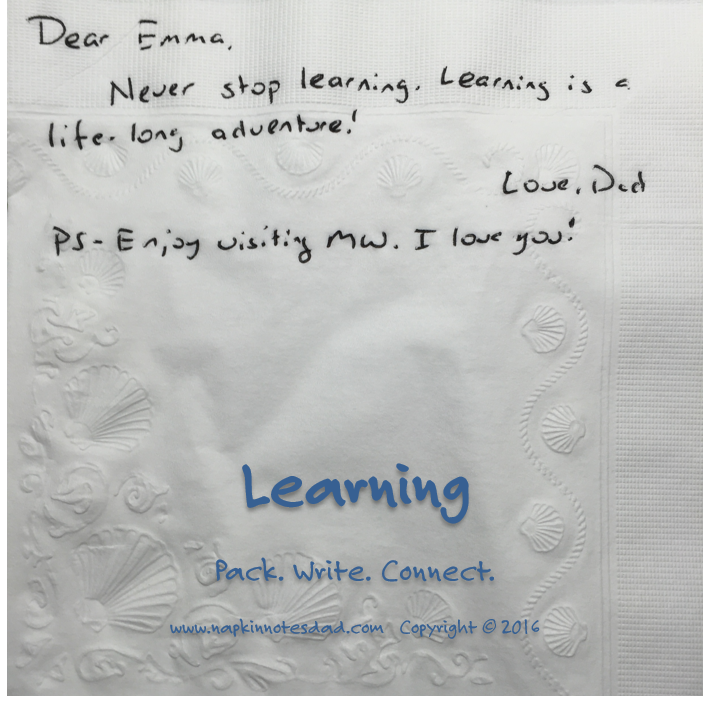 Dear Emma,
Never stop learning. Learning is a
life-long adventure!
Love, Dad
PS- Enjoy visiting MW. I love you!
Learning
Pack. Write. Connect.
www.napkinnotesdad.com Copyright © 2016